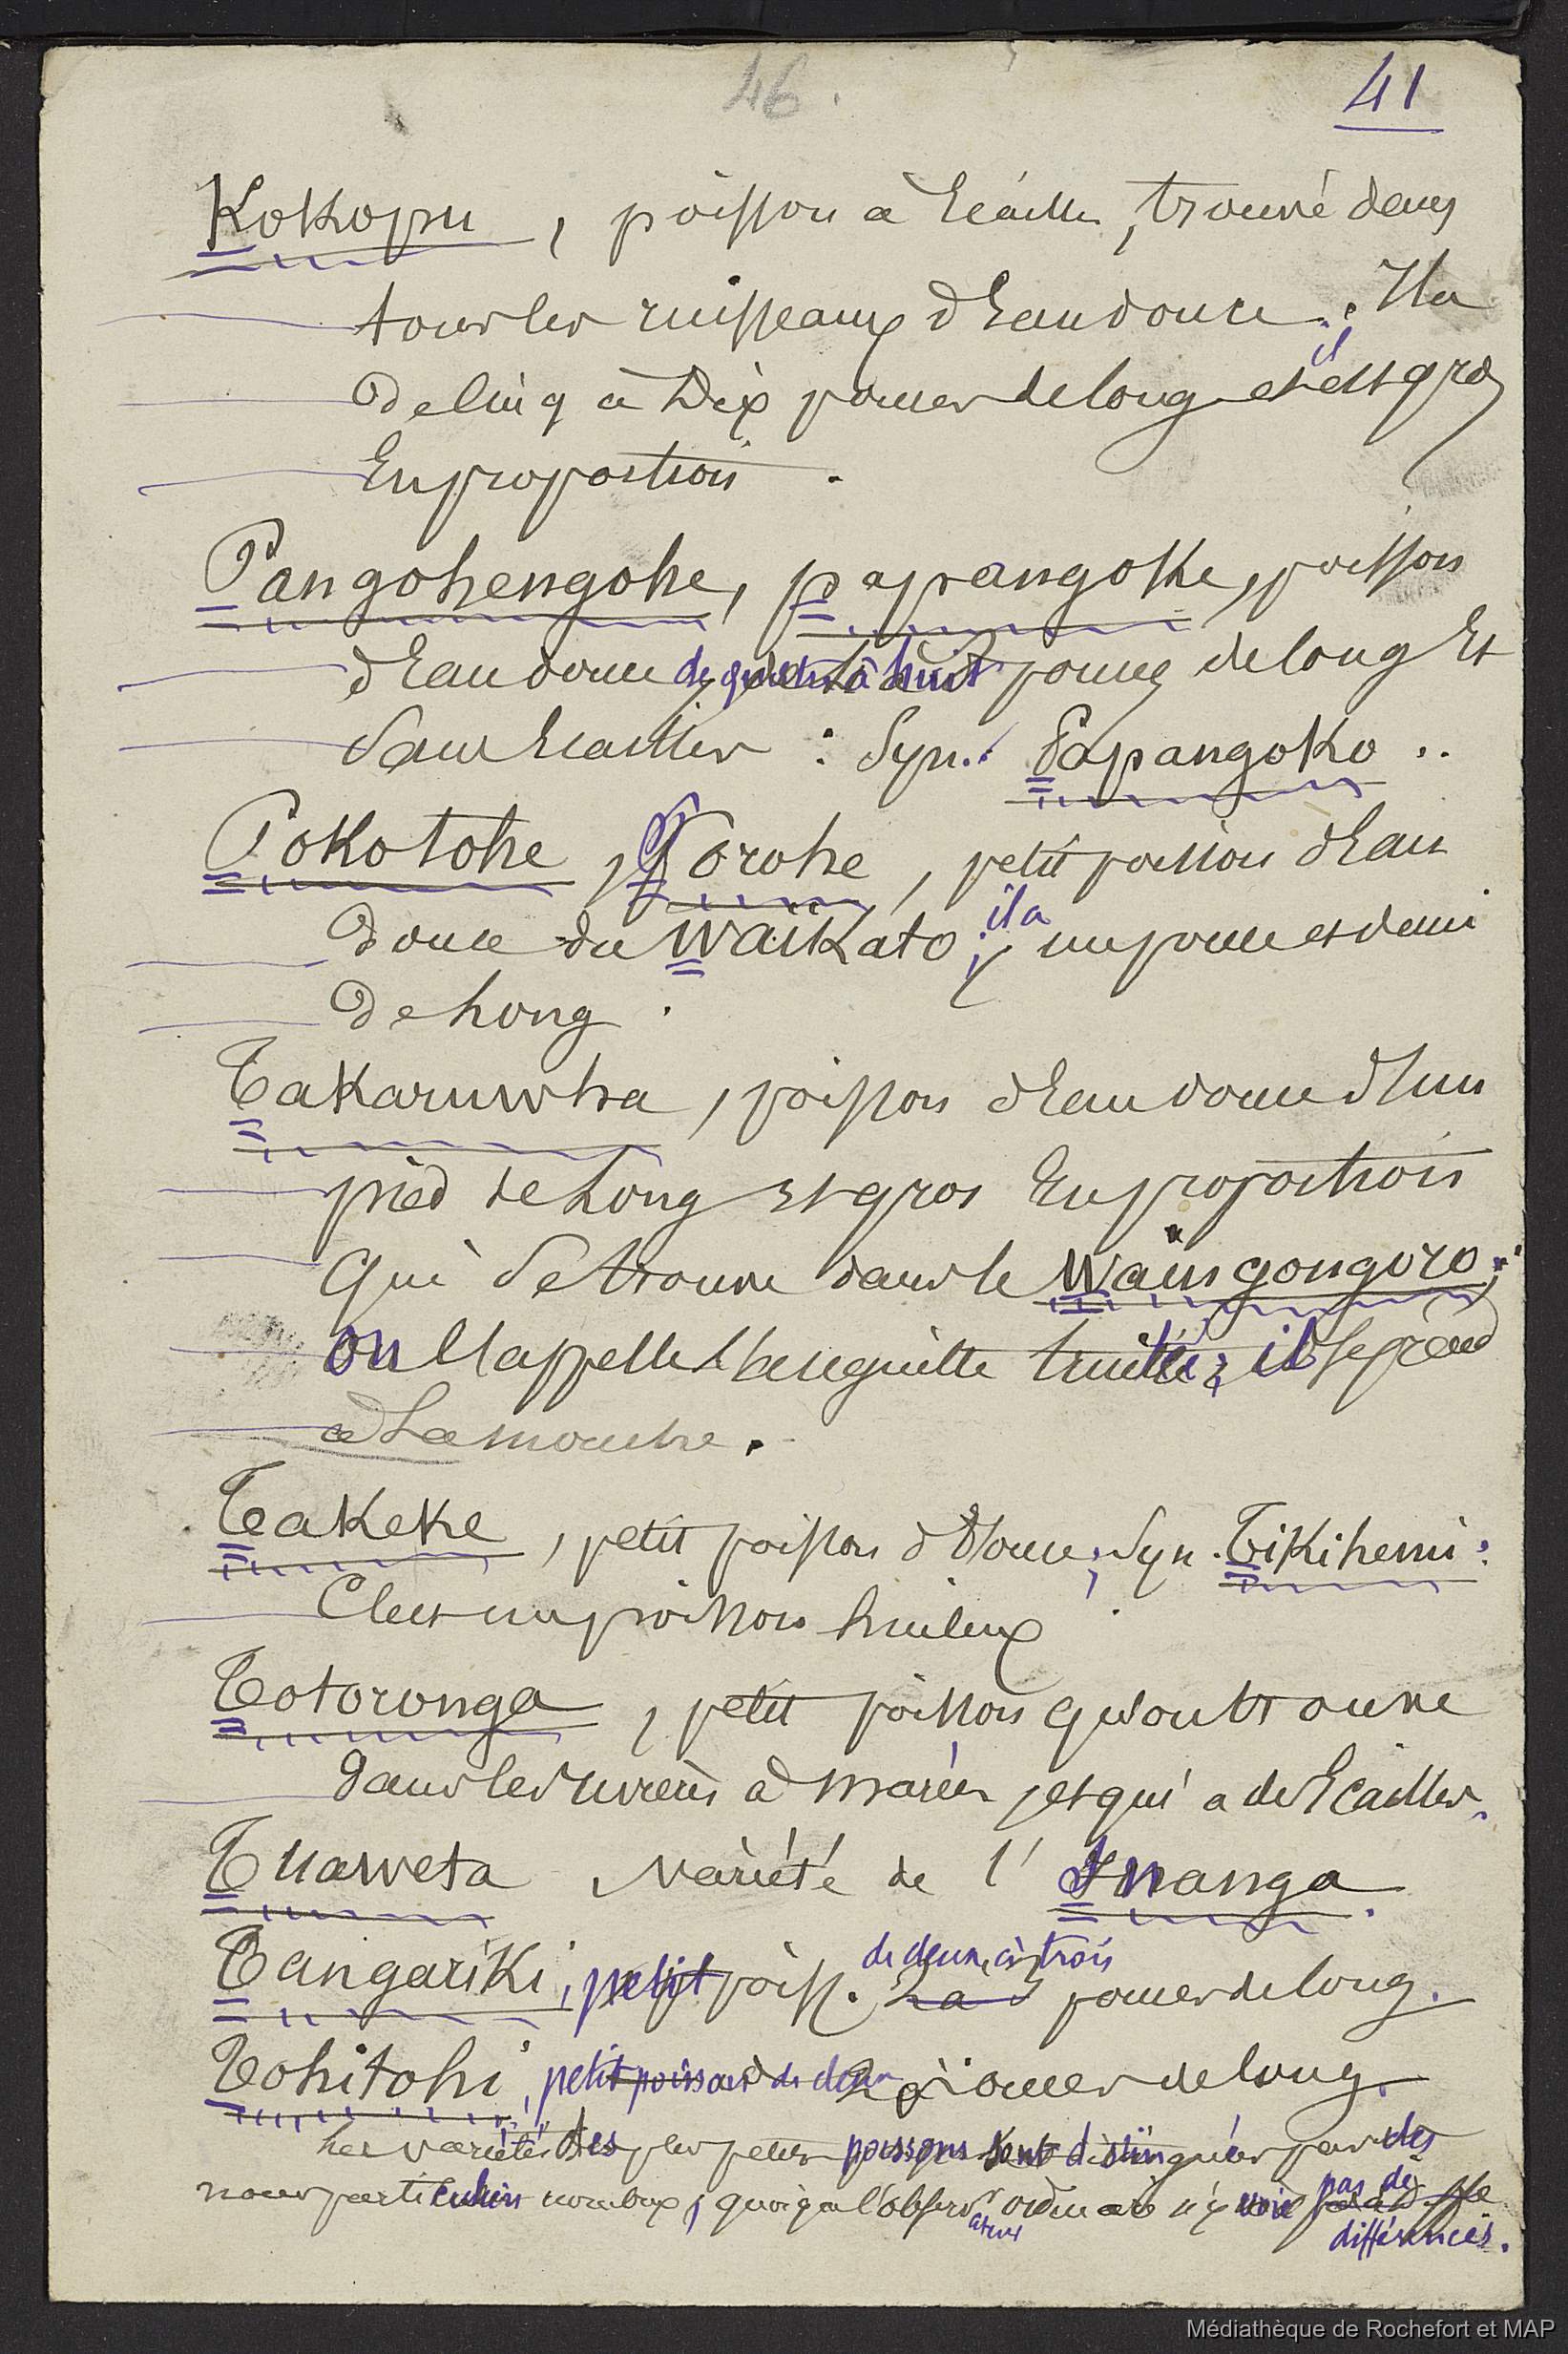 46.
41
Kokopu, poisson à Ecaille, trouvé dans
tous les ruisseaux d'Eau douce. Il a
de Cinq à Dix pouces de long et il est gros
En proportion.
Pangohengohe, papangoke, poisson
d'Eau douce de quatre à huit pouces de long Et
Sans Ecailles : Syn. Papangoko ..
Pokotohe, Porohe, petit poisson d'Eau
douce du Waikato ; il a un pouce et demi
de Long.
Takaruwha, poisson d'Eau douce d'un
pied de Long Et gros En proportion
qui Se trouve dans le Waingongoro ;
on l'appelle l'anguille truitée ; il se prend
à La mouche.
Takeke, petit poisson d'E douce ; Syn. Tikihemi :
C'est un poisson huileux
Totoronga, petit poisson qu'on trouve
dans les rivières à marées, et qui a des Ecailles.
Tuaweta variété de l'Inanga.
Tangariki, petit poiss. de deux à trois pouces de long.
Tohitohi, petit poisson de deux pouces de long.
Les variétés des plus petits poissons sont distinguées par des
noms particuliers nombreux, quoique l'observateur ordinaire n'y voie pas de
différences.
Médiathèque de Rochefort et MAP